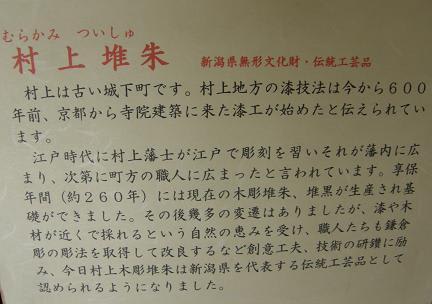 むらかみ ついしゅ
村上堆朱 新潟県無形文化財・伝統工芸品
村上は古い城下町です。村上地方の漆技法は今から６００
年前、京都から寺院建築に来た漆工が始めたと伝えられてい
ます。
江戸時代に村上藩士が江戸で彫刻を習いそれが藩内に広
まり、次第に町方の職人に広まったと言われています。享保
年間（約２６０年）には現在の木彫堆朱、堆黒が生産され基
礎ができました。その後幾多の変遷はありましたが、漆や木
材が近くで採れるという自然の恵みを受け、職人たちも鎌倉
彫の彫法を取得して改良するなど創意工夫、技術の研鑽に励
み、今日村上木彫堆朱は新潟県を代表する伝統工芸品として
認められるようになりました。